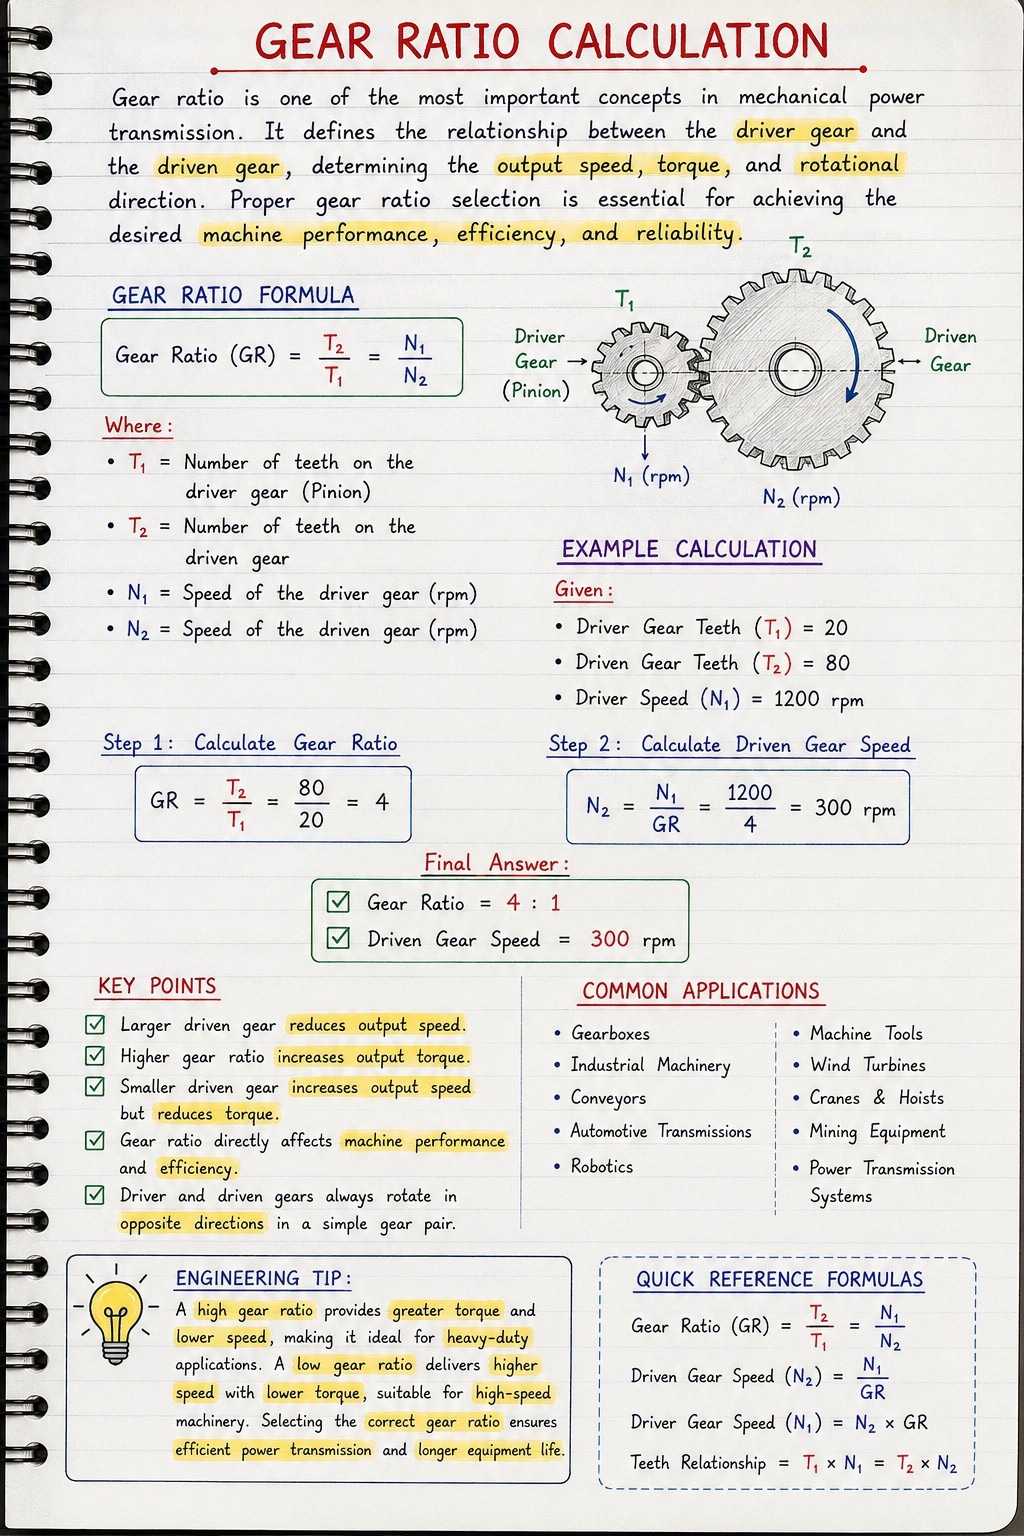 GEAR RATIO CALCULATION
Gear ratio is one of the most important concepts in mechanical power
transmission. It defines the relationship between the driver gear and
the driven gear, determining the output speed, torque, and rotational
direction. Proper gear ratio selection is essential for achieving the
desired machine performance, efficiency, and reliability.
GEAR RATIO FORMULA
Gear Ratio (GR) = T₂/T₁ = N₁/N₂
T₁
T₂
Driver
Gear
(Pinion)
Driven
Gear
N₁ (rpm)
N₂ (rpm)
Where:
• T₁ = Number of teeth on the
driver gear (Pinion)
• T₂ = Number of teeth on the
driven gear
• N₁ = Speed of the driver gear (rpm)
• N₂ = Speed of the driven gear (rpm)
EXAMPLE CALCULATION
Given:
• Driver Gear Teeth (T₁) = 20
• Driven Gear Teeth (T₂) = 80
• Driver Speed (N₁) = 1200 rpm
Step 1: Calculate Gear Ratio
GR = T₂/T₁ = 80/20 = 4
Step 2: Calculate Driven Gear Speed
N₂ = N₁/GR = 1200/4 = 300 rpm
Final Answer:
☑ Gear Ratio = 4 : 1
☑ Driven Gear Speed = 300 rpm
KEY POINTS
☑ Larger driven gear reduces output speed.
☑ Higher gear ratio increases output torque.
☑ Smaller driven gear increases output speed
but reduces torque.
☑ Gear ratio directly affects machine performance
and efficiency.
☑ Driver and driven gears always rotate in
opposite directions in a simple gear pair.
COMMON APPLICATIONS
• Gearboxes
• Industrial Machinery
• Conveyors
• Automotive Transmissions
• Robotics
• Machine Tools
• Wind Turbines
• Cranes & Hoists
• Mining Equipment
• Power Transmission
Systems
ENGINEERING TIP:
A high gear ratio provides greater torque and
lower speed, making it ideal for heavy-duty
applications. A low gear ratio delivers higher
speed with lower torque, suitable for high-speed
machinery. Selecting the correct gear ratio ensures
efficient power transmission and longer equipment life.
QUICK REFERENCE FORMULAS
Gear Ratio (GR) = T₂/T₁ = N₁/N₂
Driven Gear Speed (N₂) = N₁/GR
Driver Gear Speed (N₁) = N₂ × GR
Teeth Relationship = T₁ × N₁ = T₂ × N₂